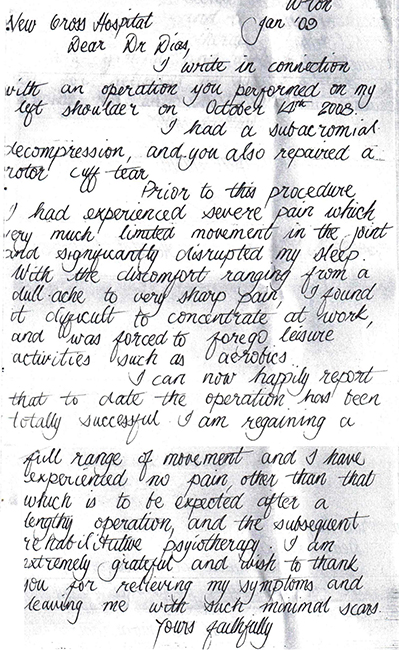 W'ton
New Cross Hospital Jan '09
Dear Dr Dias,
I write in connection
with an operation you performed on my
left shoulder on October 14th 2008.
I had a subacromial
decompression, and you also repaired a
rotor cuff tear.
Prior to this procedure
I had experienced severe pain which
very much limited movement in the joint
and significantly disrupted my sleep.
With the discomfort ranging from a
dull ache to very sharp pain, I found
it difficult to concentrate at work,
and was forced to forego leisure
activities such as aerobics.
I can now happily report
that to date the operation has been
totally successful. I am regaining a
full range of movement and I have
experienced no pain, other than that
which is to be expected after a
lengthy operation, and the subsequent
rehabilitative psyiotherapy. I am
extremely grateful and wish to thank
you for relieving my symptoms and
leaving me with such minimal scars.
Yours faithfully